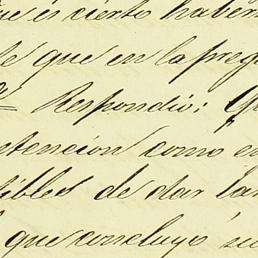 que es cierto haber
te que en la preg
Respondió: Q
etención como e
ibles de dar la
que concluyó su